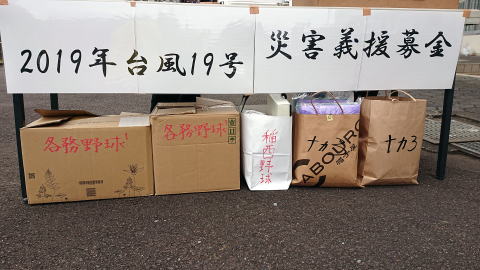 2019年台風19号 災害義援募金
各務野球
各務野球
稲西野球
ナカ3
ナカ3